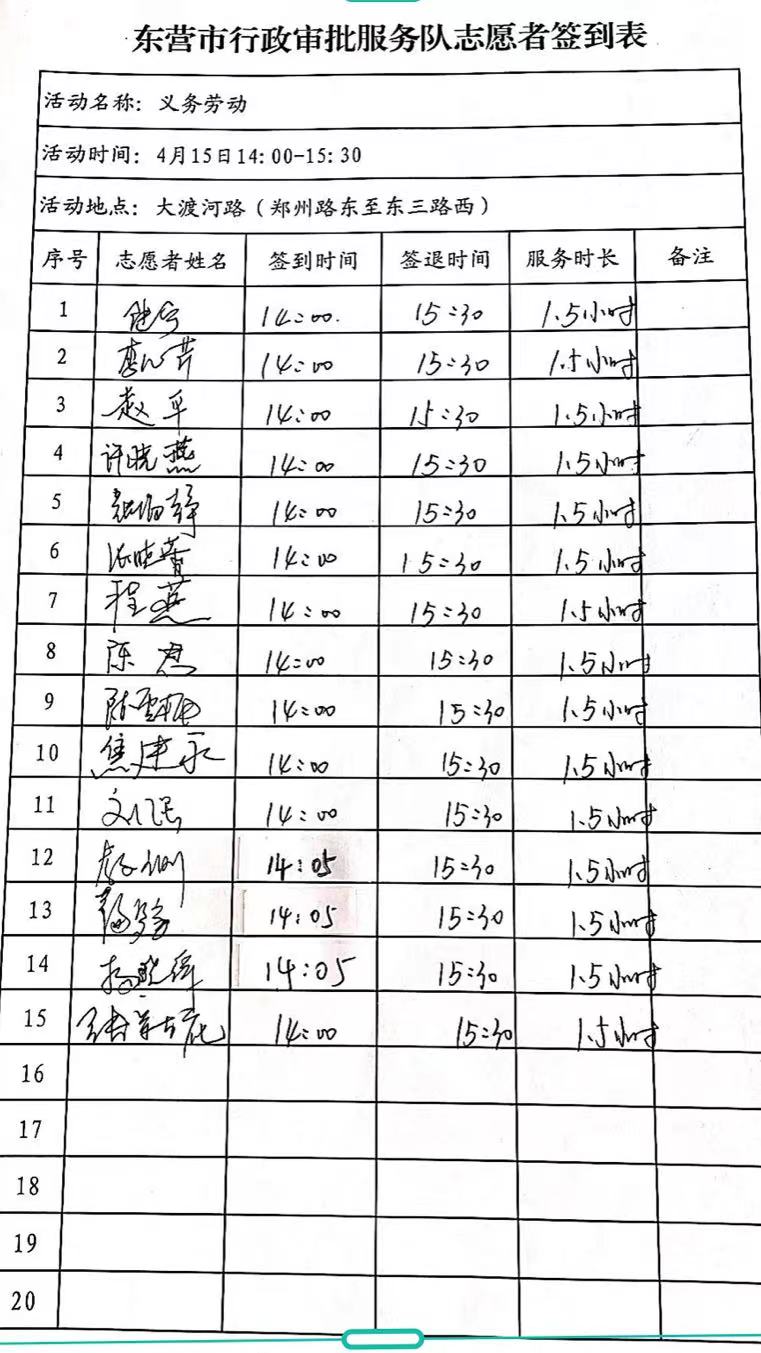 东营市行政审批服务队志愿者签到表
活动名称：义务劳动
活动时间：4月15日14：00-15：30
活动地点：大渡河路（郑州路东至东三路西）
序号 志愿者姓名 签到时间 签退时间 服务时长 备注
1 14:00. 15:30 1.5小时
2 14:00 15:30 1.5小时
3 14:00 15:30 1.5小时
4 许晓燕 14:00 15:30 1.5小时
5 14:00 15:30 1.5小时
6 14:00 15:30 1.5小时
7 程燕 14:00 15:30 1.5小时
8 陈君 14:00 15:30 1.5小时
9 14:00 15:30 1.5小时
10 焦建永 14:00 15:30 1.5小时
11 14:00 15:30 1.5小时
12 14:05 15:30 1.5小时
13 14:05 15:30 1.5小时
14 14:05 15:30 1.5小时
15 14:00 15:30 1.5小时
16
17
18
19
20